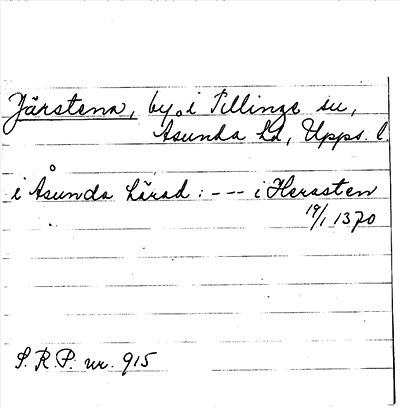 Järstena, by i Tillinge sn,
Åsunda hd, Upps. l.
i Åsunda härad: --- i Herasten
19/1 1370
S. R. P. nr. 915